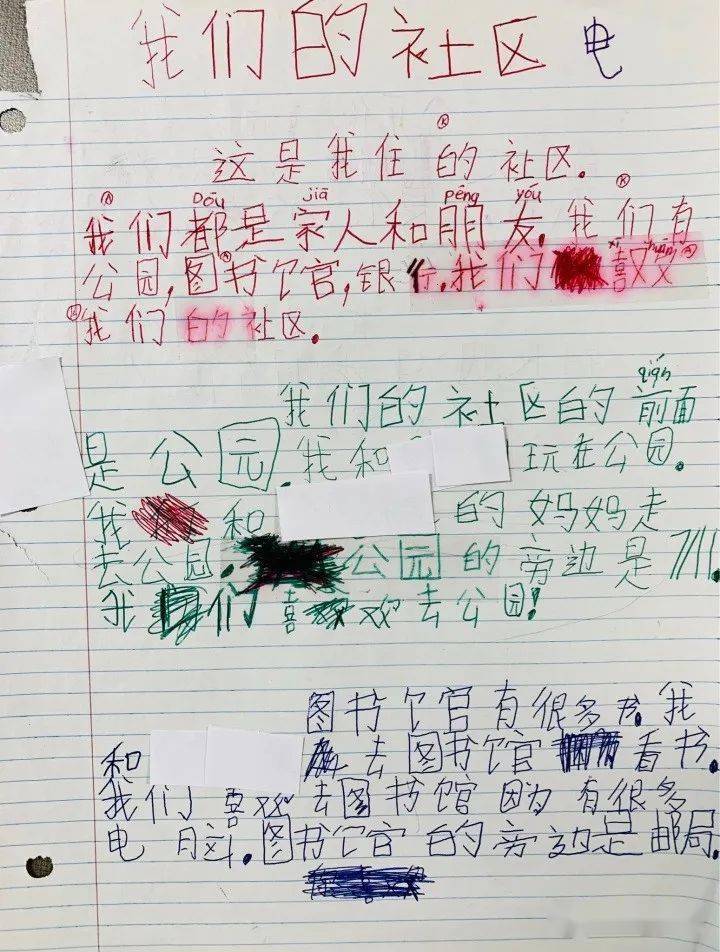 我们的社区 电
这是我住的社区.
Dōu jiā péng yǒu
我们都是家人和朋友.我们有
公园,图书馆,银行.我们喜欢
我们的社区.
qián
我们的社区的前面
是公园.我和 玩在公园.
我 和 的妈妈走
去公园.公园的旁边是711.
我们喜欢去公园!
图书馆有很多书.我
和 去图书馆看书.
我们喜欢去图书馆因为有很多
电脑.图书馆的旁边是邮局.